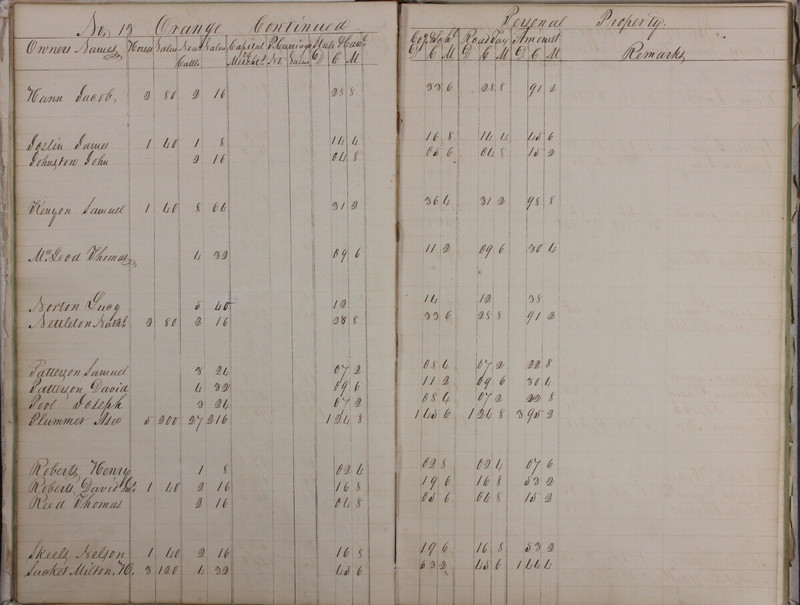 No, 13 Orange Continued Personal Property.
Owners Names Horses Value Neat Cattle Value Capital Mercht P. Carriages No Value State & Can D C M Co & Schol D C M Road Tax D C M Amount D C M Remarks
Hann Jacob, 2 80 2 16 28 8 33 6 28 8 91 2
Joslin James 1 40 1 8 14 4 16 8 14 4 45 6
Johnston John 2 16 04 8 05 6 04 8 15 2
Kenyon Samuel 1 40 8 64 31 2 36 4 31 2 98 8
McLeod Thomas 4 32 09 6 11 2 09 6 30 4
Norton Lucy 5 40 12 14 12 38
Nettleton Nathl 2 80 2 16 28 8 33 6 28 8 91 2
Patterson Samuel 3 24 07 2 08 4 07 2 22 8
Patterson David 4 32 09 6 11 2 09 6 30 4
Pool Joseph 3 24 07 2 08 4 07 2 22 8
Plummer Asa 5 200 27 216 1 24 8 1 45 6 1 24 8 3 95 2
Roberts Henry 1 8 02 4 02 8 02 4 07 6
Roberts David 1 40 2 16 16 8 19 6 16 8 53 2
Reed Thomas 2 16 04 8 05 6 04 8 15 2
Skeels Nelson 1 40 2 16 16 8 19 6 16 8 53 2
Sacket Milton. H, 3 120 4 32 45 6 53 2 45 6 1 44 4